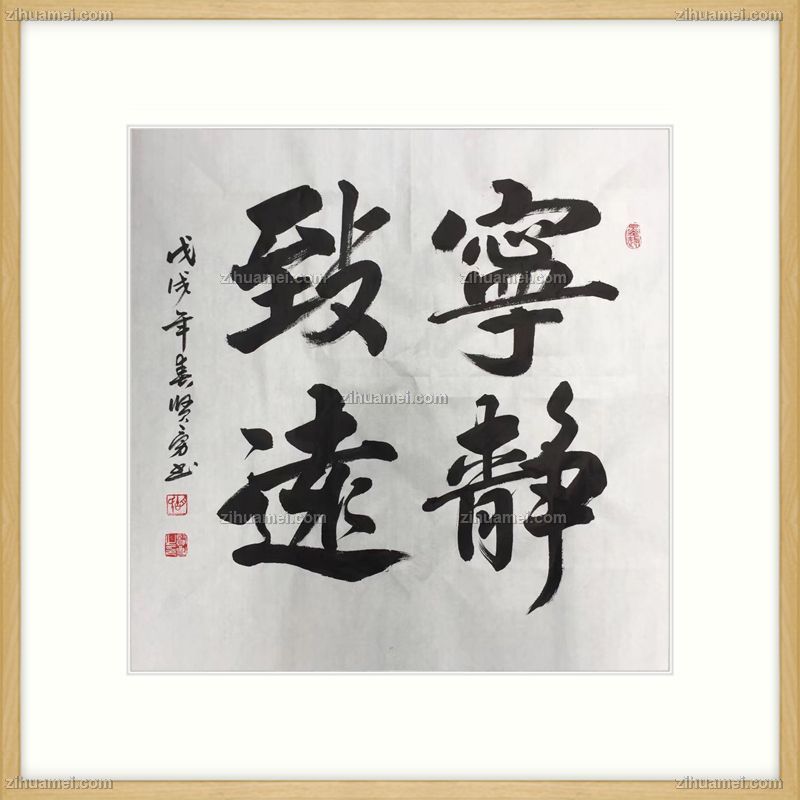 寧靜
致遠
戊戌年春賢勇書
zihuamei.com
zihuamei.com
zihuamei.com
zihuamei.com
zihuamei.com
zihuamei.com
zihuamei.com
zihuamei.com
zihuamei.com